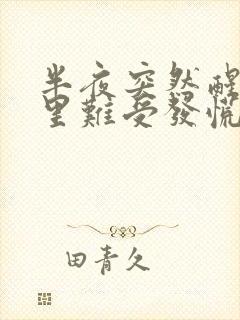 半夜突然醒
里難受發慌
田青久